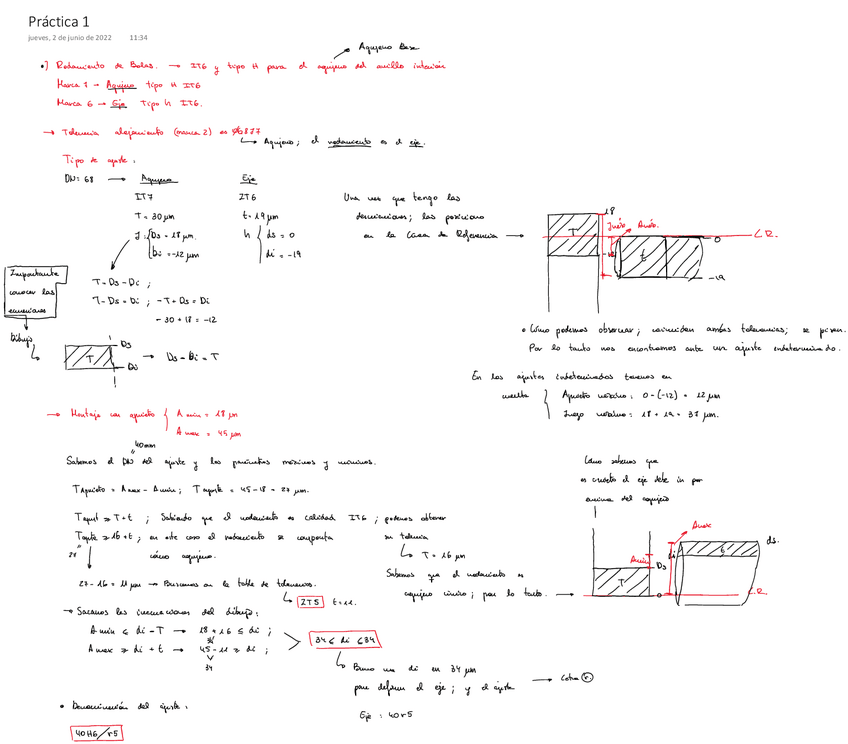 Práctica 1
jueves, 2 de junio de 2022 11:34
Agujero Base
•] Rodamiento de Bolas. → IT6 y tipo H para el agujero del anillo interior
Marca 7 → Agujero tipo H IT6
Marca 6 → Eje Tipo h IT6.
→ Tolerancia alojamiento (marca 2) es Ø68J7
Agujero; el rodamiento es el eje.
Tipo de ajuste:
DN: 68 → Agujero Eje
IT7 IT6
T = 30 μm t = 19 μm
J: Ds = 18 μm h ds = 0
Di = -12 μm di = -19
T = Ds - Di ;
T - Ds = Di ; -T + Ds = Di
- 30 + 18 = -12
Importante
conocer las
ecuaciones
Dibujo
T Ds Di → Ds - Di = T
Una vez que tengo las
dimensiones; las posiciono
en la Línea de Referencia →
18
Juego Amáx.
T 0 L.R.
-12 t
-19
• Cómo podemos observar; coinciden ambas tolerancias; se pisan.
Por lo tanto nos encontramos ante un ajuste indeterminado.
En los ajustes indeterminados tenemos en
cuenta Aprieto máximo: 0 - (-12) = 12 μm
Juego máximo: 18 + 19 = 37 μm.
→ Montaje con aprieto A min = 18 μm
A max = 45 μm
40mm
Sabemos el DN del ajuste y los parámetros máximos y mínimos.
T Aprieto = Amax - Amin; T apriet = 45 - 18 = 27 μm.
T apriet ≥ T + t ; Sabiendo que el rodamiento es calidad IT6 ; podemos obtener
su tolerancia
T aprite ≥ 16 + t ; en este caso el rodamiento se comporta
cómo agujero.
T = 16 μm
27
27 - 16 = 11 μm → Buscamos en la tabla de tolerancias.
IT5 t = 11.
Sabemos que el rodamiento es
agujero único; por lo tanto. →
Cómo sabemos que
es aprieto el eje debe ir por
encima del agujero
Amax ds.
Amin di t
Ds
T 0 L.R
→ Sacamos las inecuaciones del dibujo:
A min ≤ di - T → 18 + 16 ≤ di ;
34
A max ≥ di + t → 45 - 11 ≥ di ;
34
34 ≤ di ≤ 34
Busco una di en 34 μm
para definir el eje ; y el ajuste → Letra r.
Eje : 40 r5
• Denominación del ajuste:
40 H6/r5